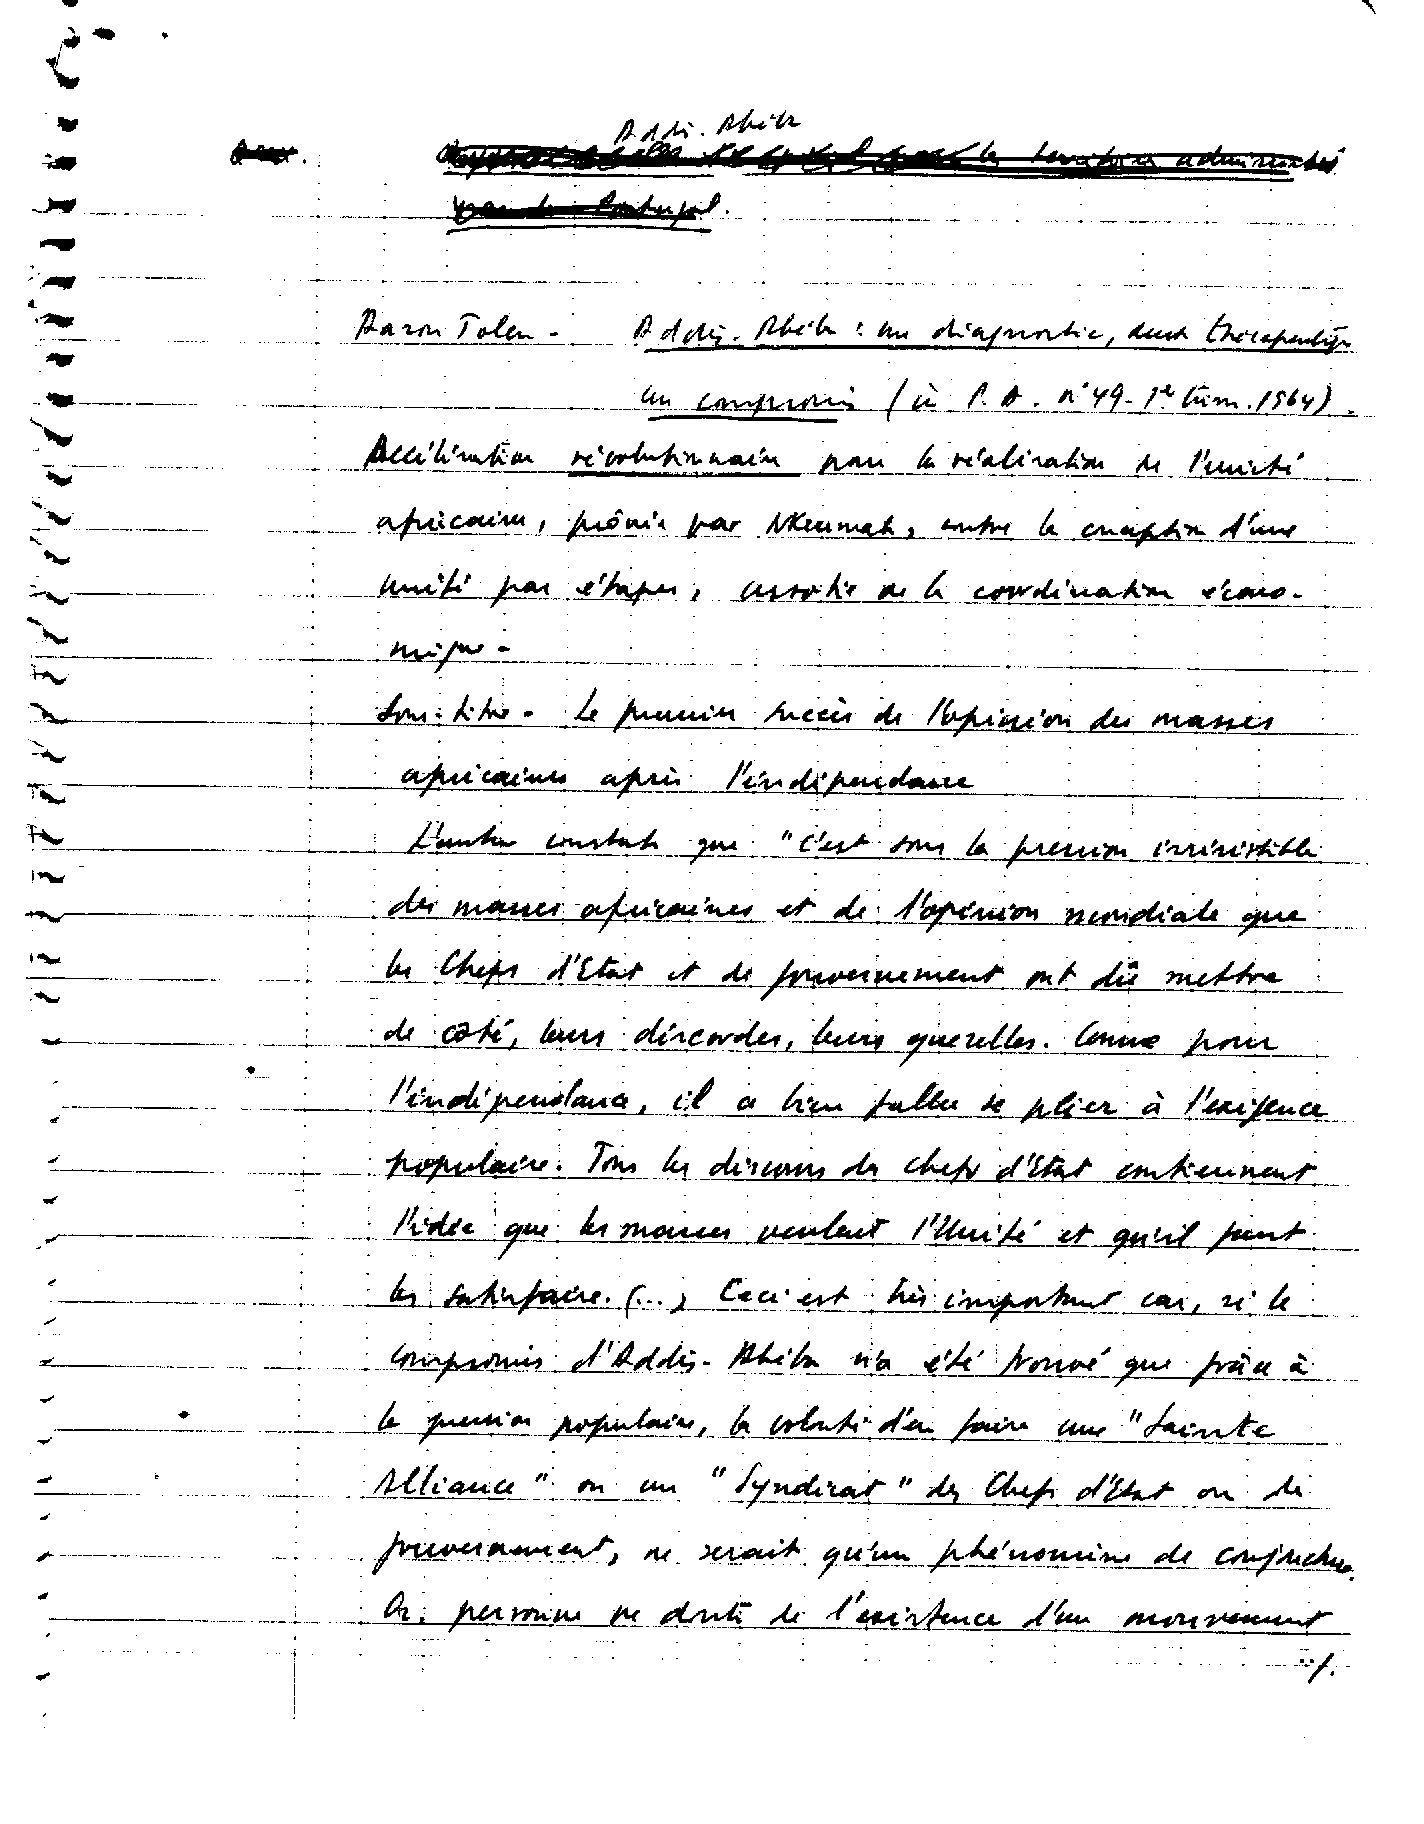 Addis-Abéba
les territoires administrés
Portugal.
Aaron Tolen - Addis-Abéba : un diagnostic, deux thérapeutiques
un compromis (in P.A. n°49 - 1er trim. 1964).
Accélération révolutionnaire pour la réalisation de l'unité
africaine, prônée par NKrumah, contre la conception d'une
unité par étapes, assortie de la coordination écono-
mique -
Sous-titre - Le premier succès de l'opinion des masses
africaines après l'indépendance
L'auteur constate que "c'est sous la pression irrésistible
des masses africaines et de l'opinion mondiale que
les Chefs d'Etat et de gouvernement ont dû mettre
de côté, leurs discordes, leurs querelles. Comme pour
l'indépendance, il a bien fallu se plier à l'exigence
populaire. Tous les discours des chefs d'Etat contiennent
l'idée que les masses veulent l'Unité et qu'il faut
les satisfaire. (...) Ceci est très important car, si le
compromis d'Addis-Abéba n'a été trouvé que grâce à
la pression populaire, la volonté d'en faire une "Sainte
Alliance" ou un "Syndicat" des Chefs d'Etat ou de
gouvernement, ne serait qu'un phénomène de conjoncture.
Or, personne ne doute de l'existence d'un mouvement
../.